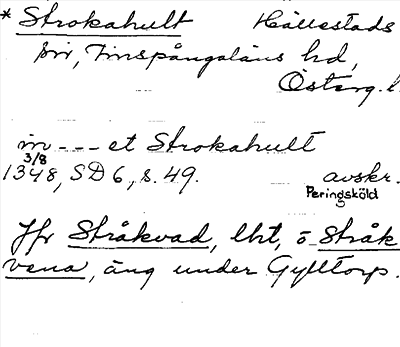 * Strokahult Hällestads
sn, Finspångaläns hd,
Österg. l.
in --- et Strokahult
3/8
1348, SD 6, s. 49. avskr.
Peringsköld
Jfr Stråkvad, lht, o Stråk
vena, äng under Gylltorp.